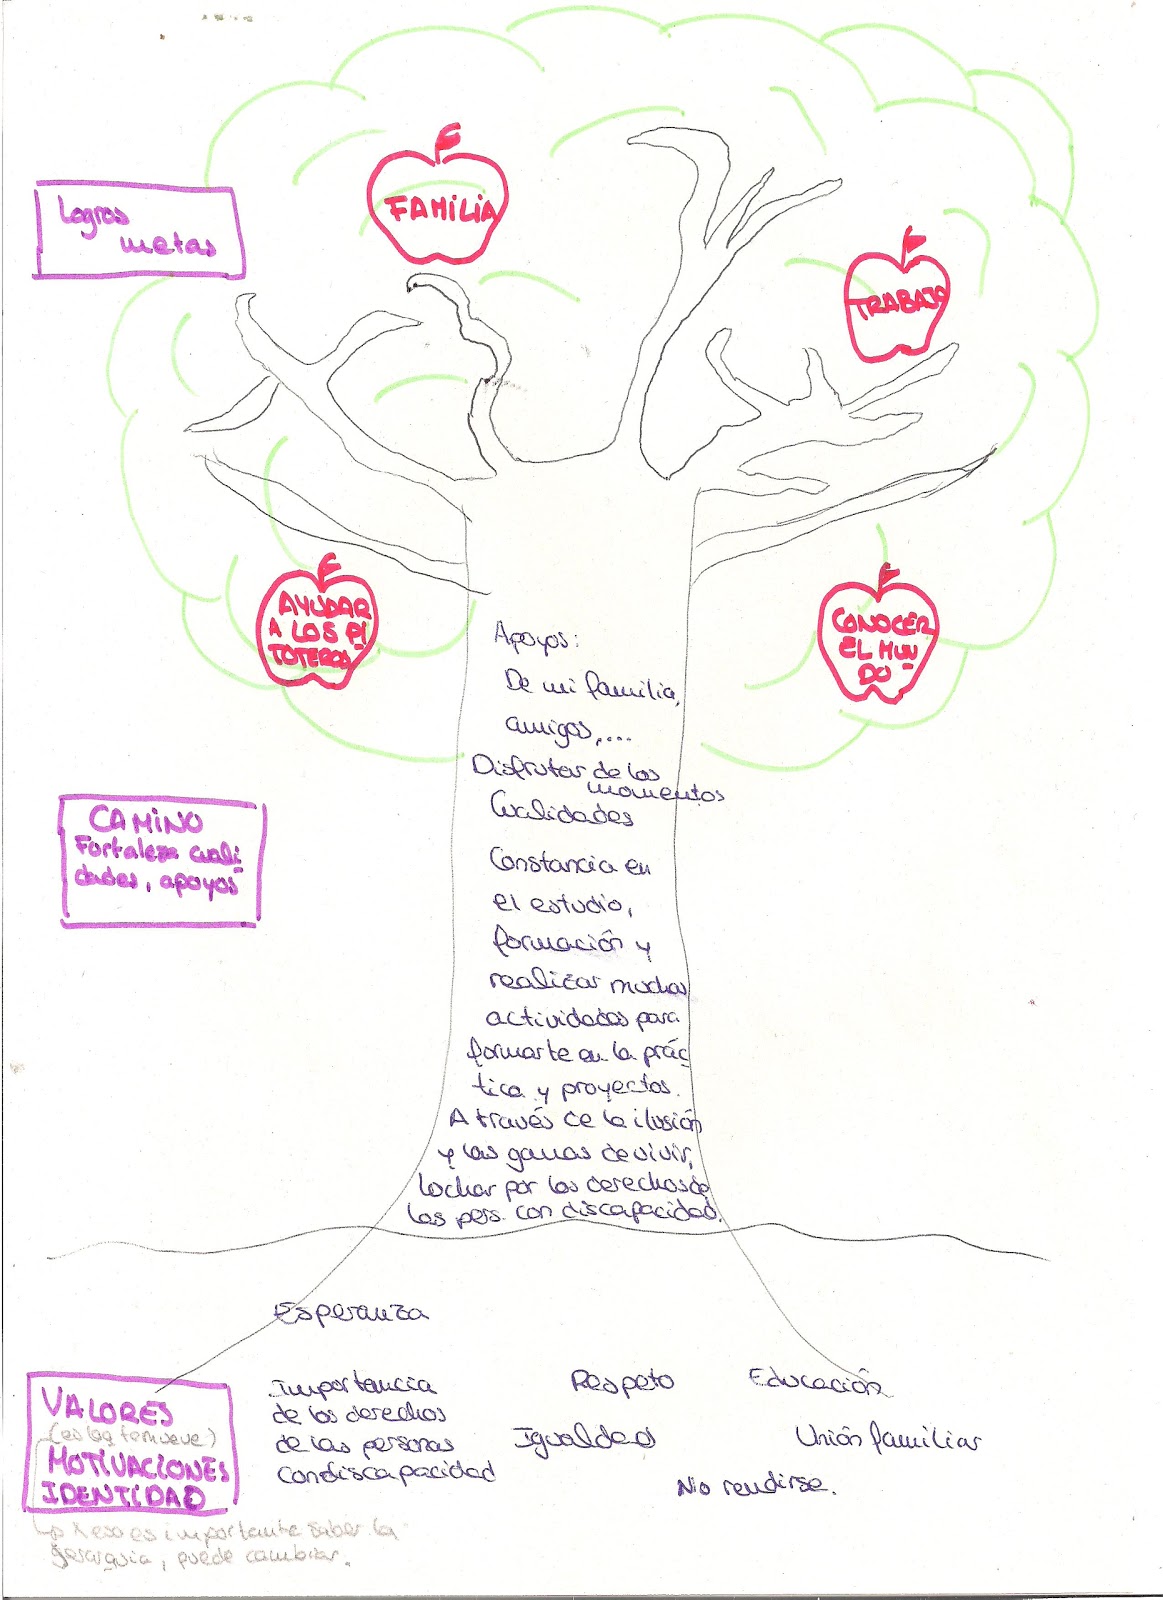 Logros
metas
FAMILIA
TRABAJO
AYUDAR
A LOS PI
TOTEROS
CONOCER
EL MUN
DO
Apoyos:
De mi familia,
amigos,....
Disfrutar de los
momentos
Cualidades
Constancia en
el estudio,
formación y
realizar muchas
actividades para
formarte en la prác
tica y proyectos.
A través de la ilusión
y las ganas de vivir,
luchar por los derechos de
las pers. con discapacidad.
CAMINO
Fortaleza cuali
dades, apoyos
Esperanza
Importancia
de los derechos
de las personas
con discapacidad
Respeto
Educación
Igualdad
Unión familiar
No rendirse.
VALORES
(es lo q te mueve)
MOTIVACIONES
IDENTIDAD
x eso es importante saber la
gerarquia, puede cambiar.